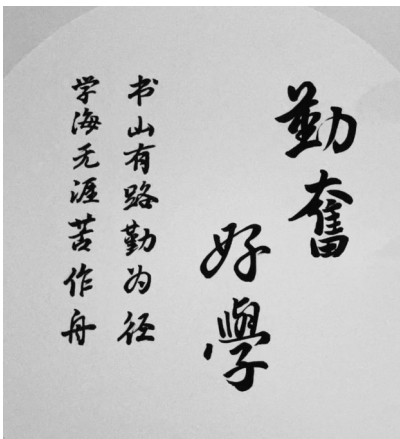 勤奮
好學
书山有路勤为径
学海无涯苦作舟